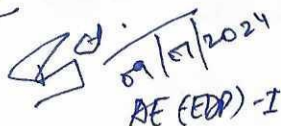 09/07/2024
AE (EDP) -I